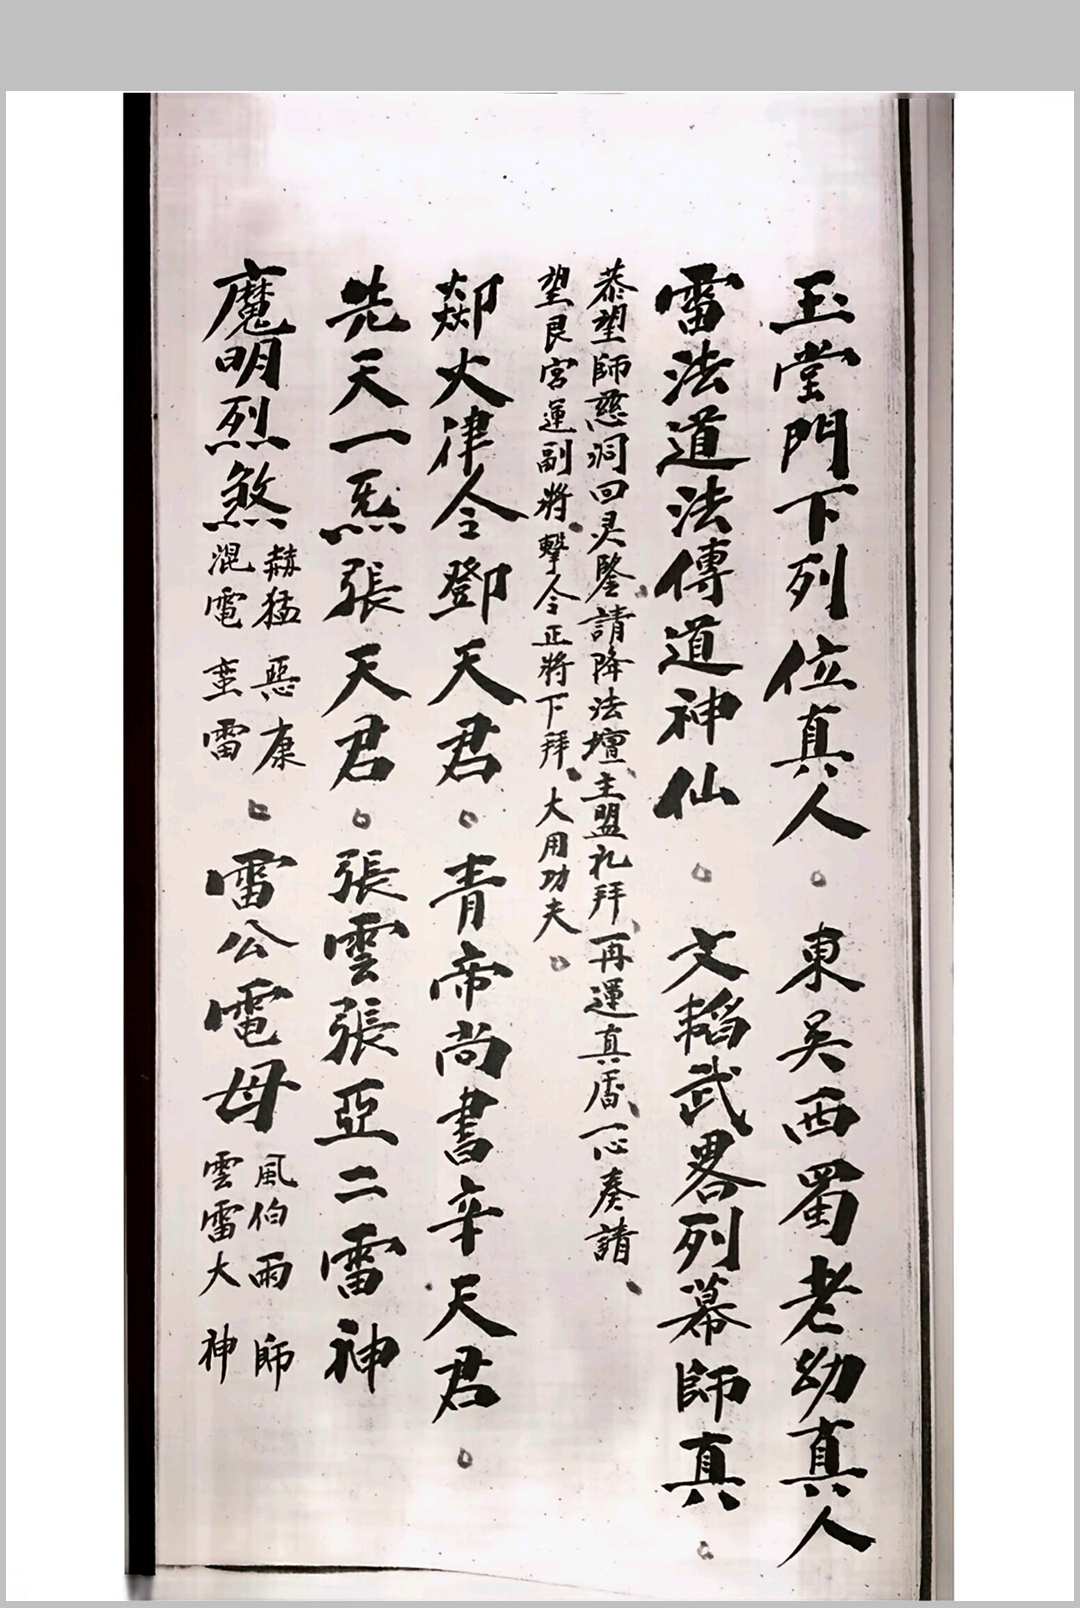 玉堂門下列位真人。東吳西蜀老幼真人
雷法道法傳道神仙。文韜武畧列幕師真。
恭望師慈洞回灵鑒、請降法壇、主盟礼拜、再運真香、一心奏請、
望艮宮運副將、擊令正將下拜、大用功夫。
歘火律令鄧天君。青帝尚書辛天君。
先天一炁張天君。張雲張亞二雷神
魔明烈煞
赫猛惡康
混電蛮雷
。雷公電母
風伯雨師
雲雷大神